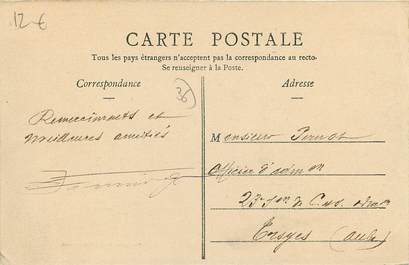 12 €
CARTE POSTALE
Tous les pays étrangers n'acceptent pas la correspondance au recto-
Se renseigner à la Poste.
Correspondance
Adresse
36
Remerciments et
meilleures amitiés
Monsieur Pernot
officier d'adm on
23e
Troyes (Aube)